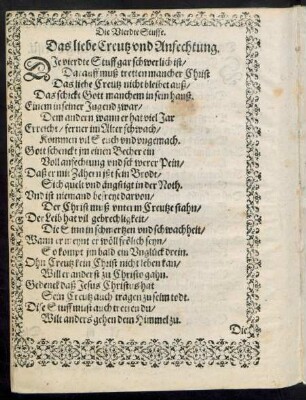 Die Vierdte Stuffe.
Das liebe Creutz vnd Anfechtung.
DJe vierdte Stuff gar schwerlich ist/
Darauff muß tretten mancher Christ
Das liebe Creutz nicht bleibet auß/
Das schickt Gott manchem in sein hauß.
Einem in seiner Jugend zwar/
Dem andern wann er hat viel Jar
Erreicht/ ferner im Alter schwach/
Kommen vil Creutz vnd vngemach.
Gott schenckt jm einen Becher ein
Voll anfechtung vnd schwerer Pein/
Daß er mit Zähern ißt sein Brodt/
Sich quelt vnd ängstigt in der Noth.
Vnd ist niemand befreyt darvon/
Der Christ muß vnterm Creutze stahn/
Der Leib hat vil gebrechligkeit/
Die Sinn in schmertzen vnd schwachheit/
Wann er meynt er wöll frölich seyn/
So kompt jm bald ein Vnglück drein.
Ohn Creutz kein Christ nicht leben kan/
Will er anderst zu Christo gahn.
Gedenck daß Jesus Christus hat
Sein Creutz auch tragen zu seim todt.
Dise Stuff must auch tretten du/
Wilt anders gehen dem Himmel zu.
Die